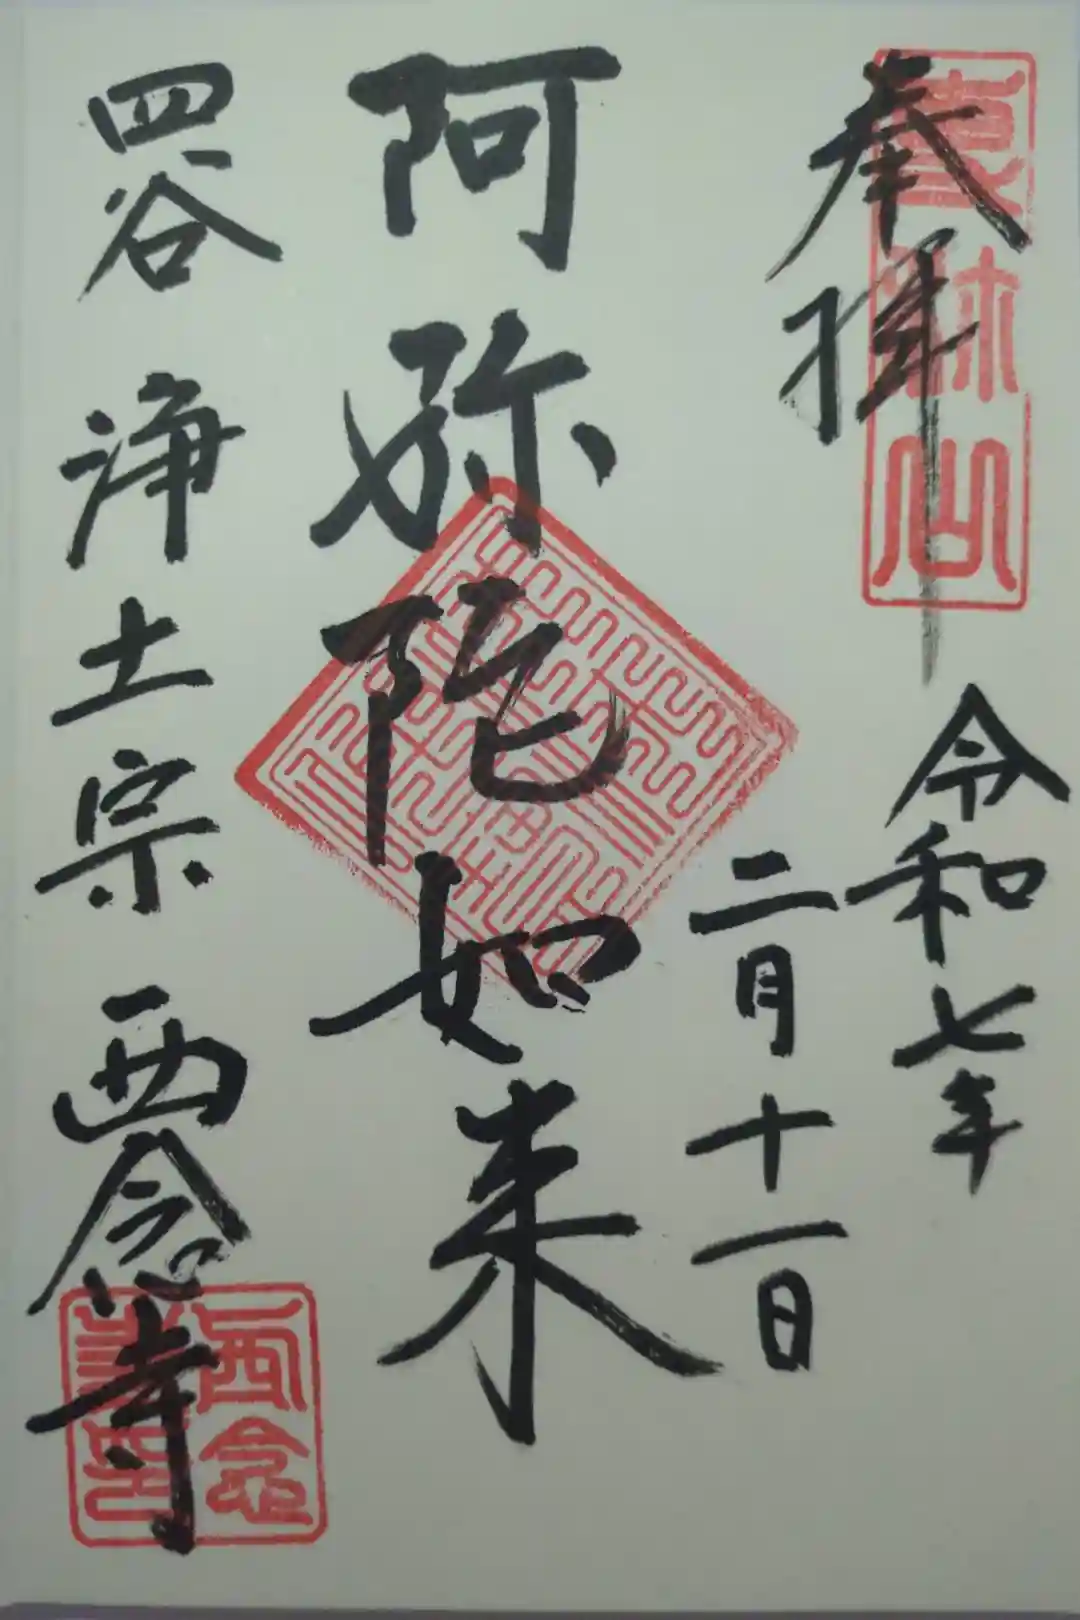 奉拝
令和七年
二月十一日
阿弥陀如来
四谷 浄土宗 西念寺
西念
寺印